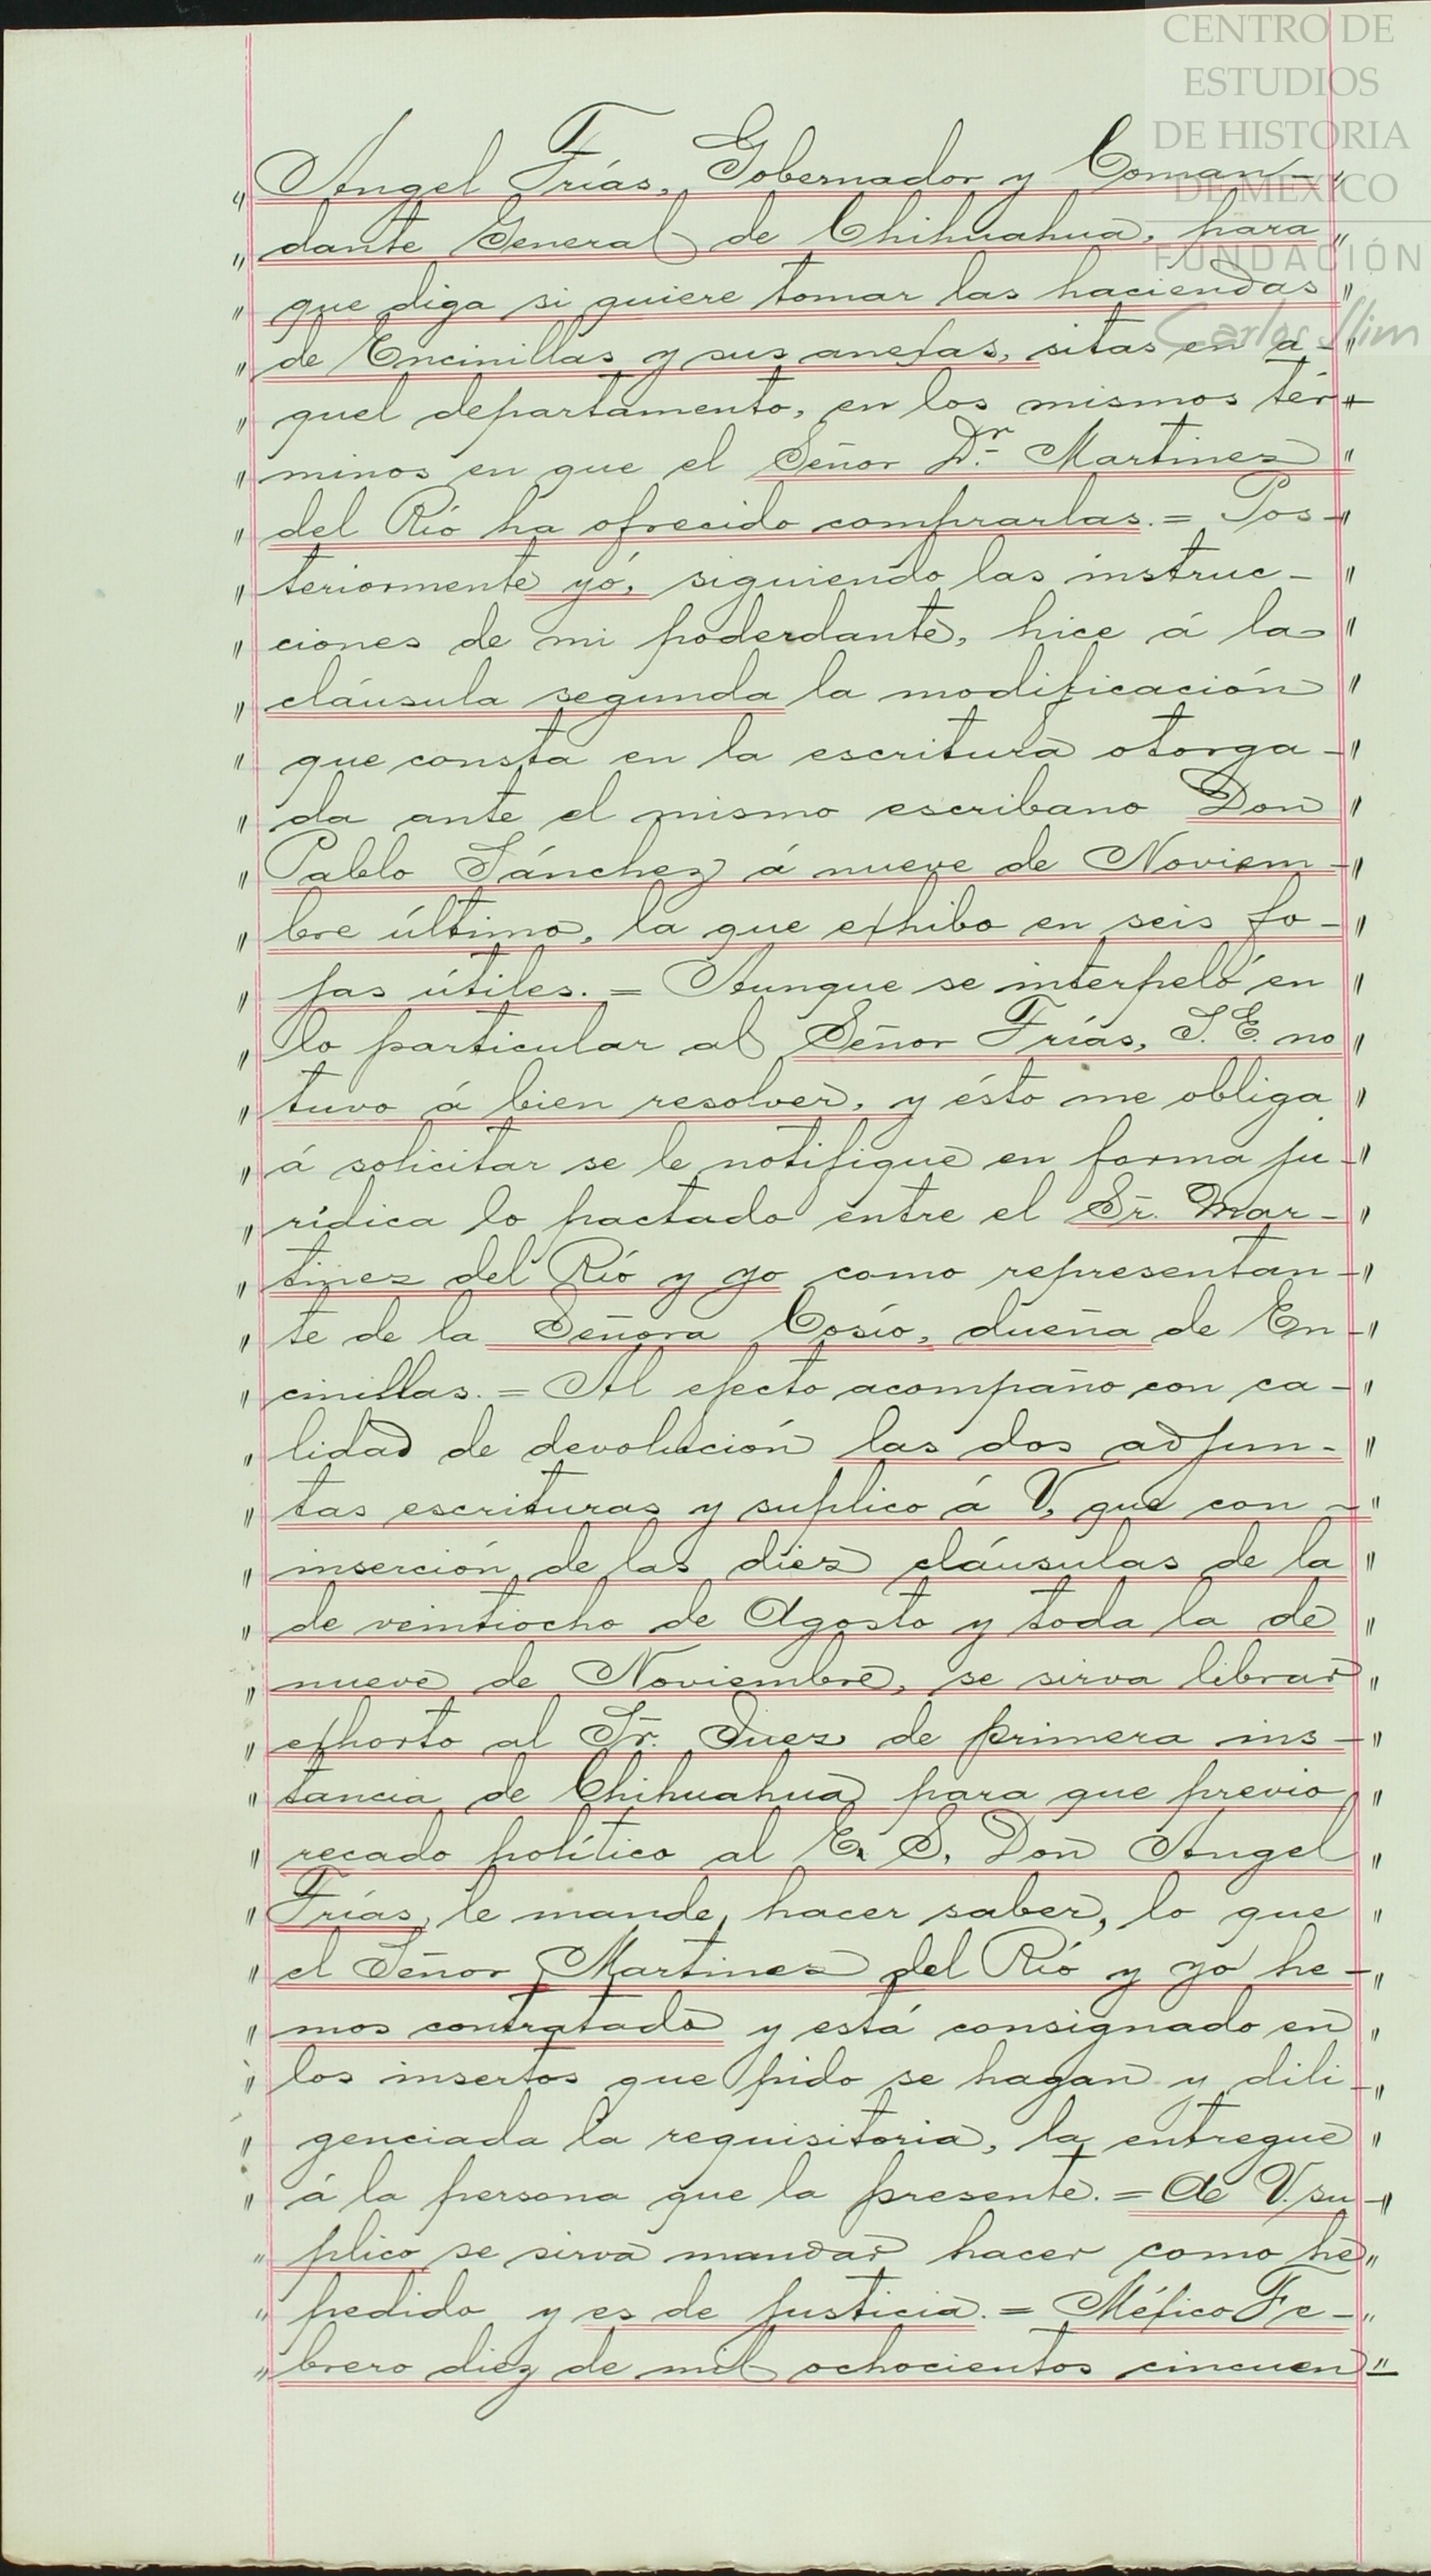 CENTRO DE
ESTUDIOS
DE HISTORIA
DE MÉXICO
FUNDACIÓN
Carlos Slim
" Angel Frías, Gobernador y Coman- "
" dante General de Chihuahua, para "
" que diga si quiere tomar las haciendas "
" de Encinillas y sus anexas, sitas en a- "
" quel departamento, en los mismos tér- "
" minos en que el Señor Dr. Martinez "
" del Río ha ofrecido comprarlas. = Pos- "
" teriormente yó, siguiendo las instruc- "
" ciones de mi poderdante, hice á la "
" cláusula segunda la modificación "
" que consta en la escritura otorga- "
" da ante el mismo escribano Don "
" Pablo Sánchez á nueve de Noviem- "
" bre último, la que exhibo en seis fo- "
" jas útiles. = Aunque se interpeló en "
" lo particular al Señor Frías, S. E. no "
" tuvo á bien resolver, y ésto me obliga "
" á solicitar se le notifique en forma ju- "
" rídica lo pactado entre el Sr. Mar- "
" tinez del Río y yo como representan- "
" te de la Señora Cosío, dueña de En- "
" cinillas. = Al efecto acompaño con ca- "
" lidad de devolución las dos adjun- "
" tas escrituras y suplico á V, que con- "
" inserción de las diez cláusulas de la "
" de veintiocho de Agosto y toda la de "
" nueve de Noviembre, se sirva librar "
" exhorto al Sr. Juez de primera ins- "
" tancia de Chihuahua para que previo "
" recado político al E. S. Don Angel "
" Frías, le mande, hacer saber, lo que "
" el Señor Martinez del Río y yo he- "
" mos contratado y está consignado en "
" los insertos que pido se hagan y dili- "
" genciada la requisitoria, la entregue "
" á la persona que la presente. = A V. su- "
" plico se sirva mandar hacer como he "
" pedido y es de justicia. = México Fe- "
" brero diez de mil ochocientos cincuen "